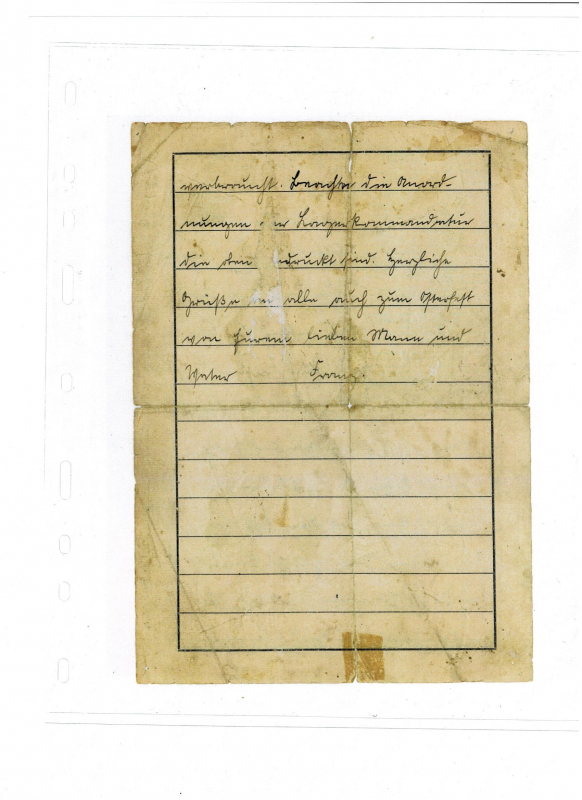 verbraucht. Beachtet die Anord-
nungen der Lagerkommandatur
die oben gedruckt sind. Herzliche
Grüße an alle auch zum Osterfest
von Eurem lieben Mann und
Vater Franz.